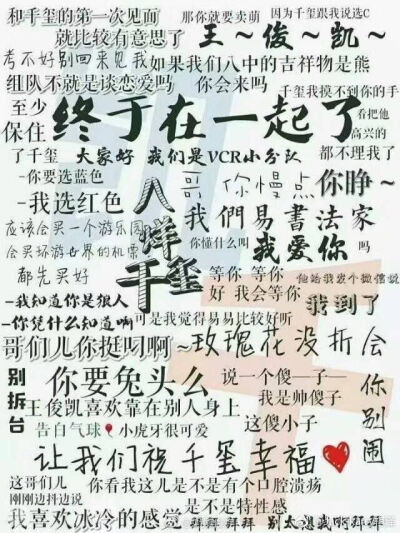 和千玺的第一次见面
那你就要卖萌
因为千玺跟我说选C
就比较有意思了
王～俊～凯～
考不好别回来见我
如果我们八中的吉祥物是熊
组队不就是谈恋爱吗
你会来吗
千玺我摸不到你的手
至少
保住
终于在一起了
看把他
高兴的
都不理我了
了千玺
大家好 我们是VCR小分队
-你要选蓝色
-我选红色
哥 你慢点
你睁～
八
样
千玺
应该会买一个游乐园
会买环游世界的机票
都先买好
我們易書法家
你懂什么叫
我爱你
吗
等你 等你
好 我会等你
他给我发个微信说
我到了
-我知道你是狼人
-你凭什么知道啊
可是我觉得易易比较好听
哥们儿你挺叼啊～
玫瑰花没折会
别
拆
台
你要兔头么
说一个傻—子—
我是帅傻子
你
别
闹
王俊凯喜欢靠在别人身上
这傻小子
告白气球🎈小虎牙很可爱
让我们祝千玺幸福❤
这哥们儿
刚刚边抖边说
你看我这儿是不是有个口腔溃疡
是不是特性感
我喜欢冰冷的感觉
拜拜 拜拜 拜拜
别太想我啊拜拜